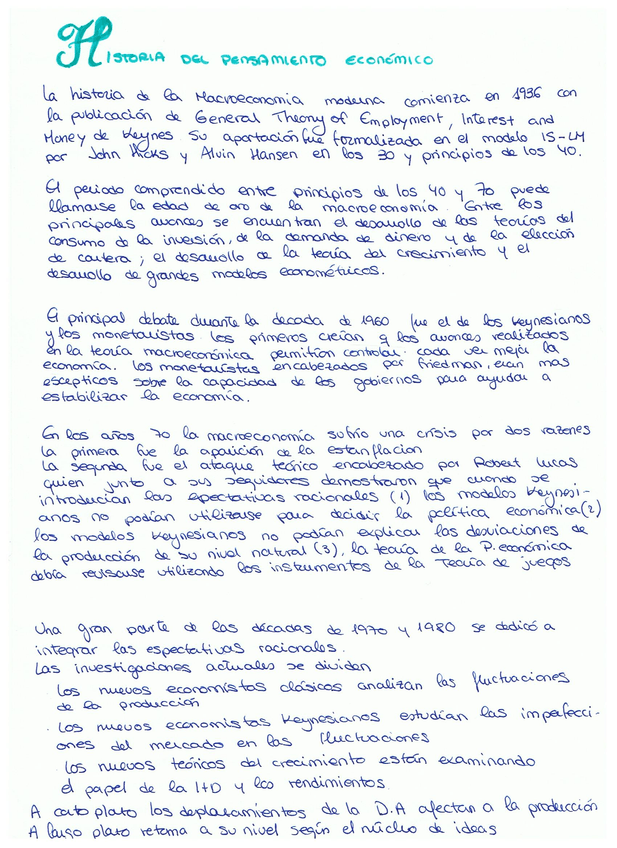 HISTORIA DEL PENSAMIENTO ECONÓMICO
La historia de la Macroeconomia moderna comienza en 1936 con
la publicación de General Theory of Employment, Interest and
Money de Keynes Su aportación fue formalizada en el modelo IS-LM
por John Hicks y Alvin Hansen en los 30 y principios de los 40.
El periodo comprendido entre principios de los 40 y 70 puede
llamarse la edad de oro de la macroeconomía. Entre los
principales avances se encuentran el desarrollo de las teorías del
consumo de la inversión, de la demanda de dinero y de la elección
de cartera; el desarrollo de la teoría del crecimiento y el
desarrollo de grandes modelos econométricos.
El principal debate durante la decada de 1960 fue el de los keynesianos
y los monetaristas. los primeros creían q los avances realizados
en la teoría macroeconómica permitían controlar cada vez mejor la
economía. los monetaristas encabezados por friedman, eran mas
escepticos sobre la capacidad de los gobiernos para ayudar a
estabilizar la economía.
En los años 70 la macroeconomía sufrió una crisis por dos razones
la primera fue la aparición de la estanflacion
La segunda fue el ataque teórico encabezado por Robert Lucas
quien junto a sus seguidores demostraron que cuando se
introducian las espectativas racionales (1) los modelos keynesi-
anos no podían utilizarse para decidir la política económica (2)
los modelos keynesianos no podían explicar las desviaciones de
la producción de su nivel natural (3), la teoría de la P. económica
debía revisarse utilizando los instrumentos de la Teoría de juegos
Una gran parte de las décadas de 1970 y 1980 se dedicó a
integrar las espectativas racionales.
Las investigaciones actuales se dividen
· Los nuevos economistas clásicos analizan las fluctuaciones
de la producción
· Los nuevos economistas keynesianos estudian las imperfecci-
ones del mercado en las fluctuaciones
· los nuevos teóricos del crecimiento están examinando
el papel de la I+D y los rendimientos.
A corto plazo los desplazamientos de la D.A afectan a la producción
A largo plazo retorna a su nivel según el núcleo de ideas